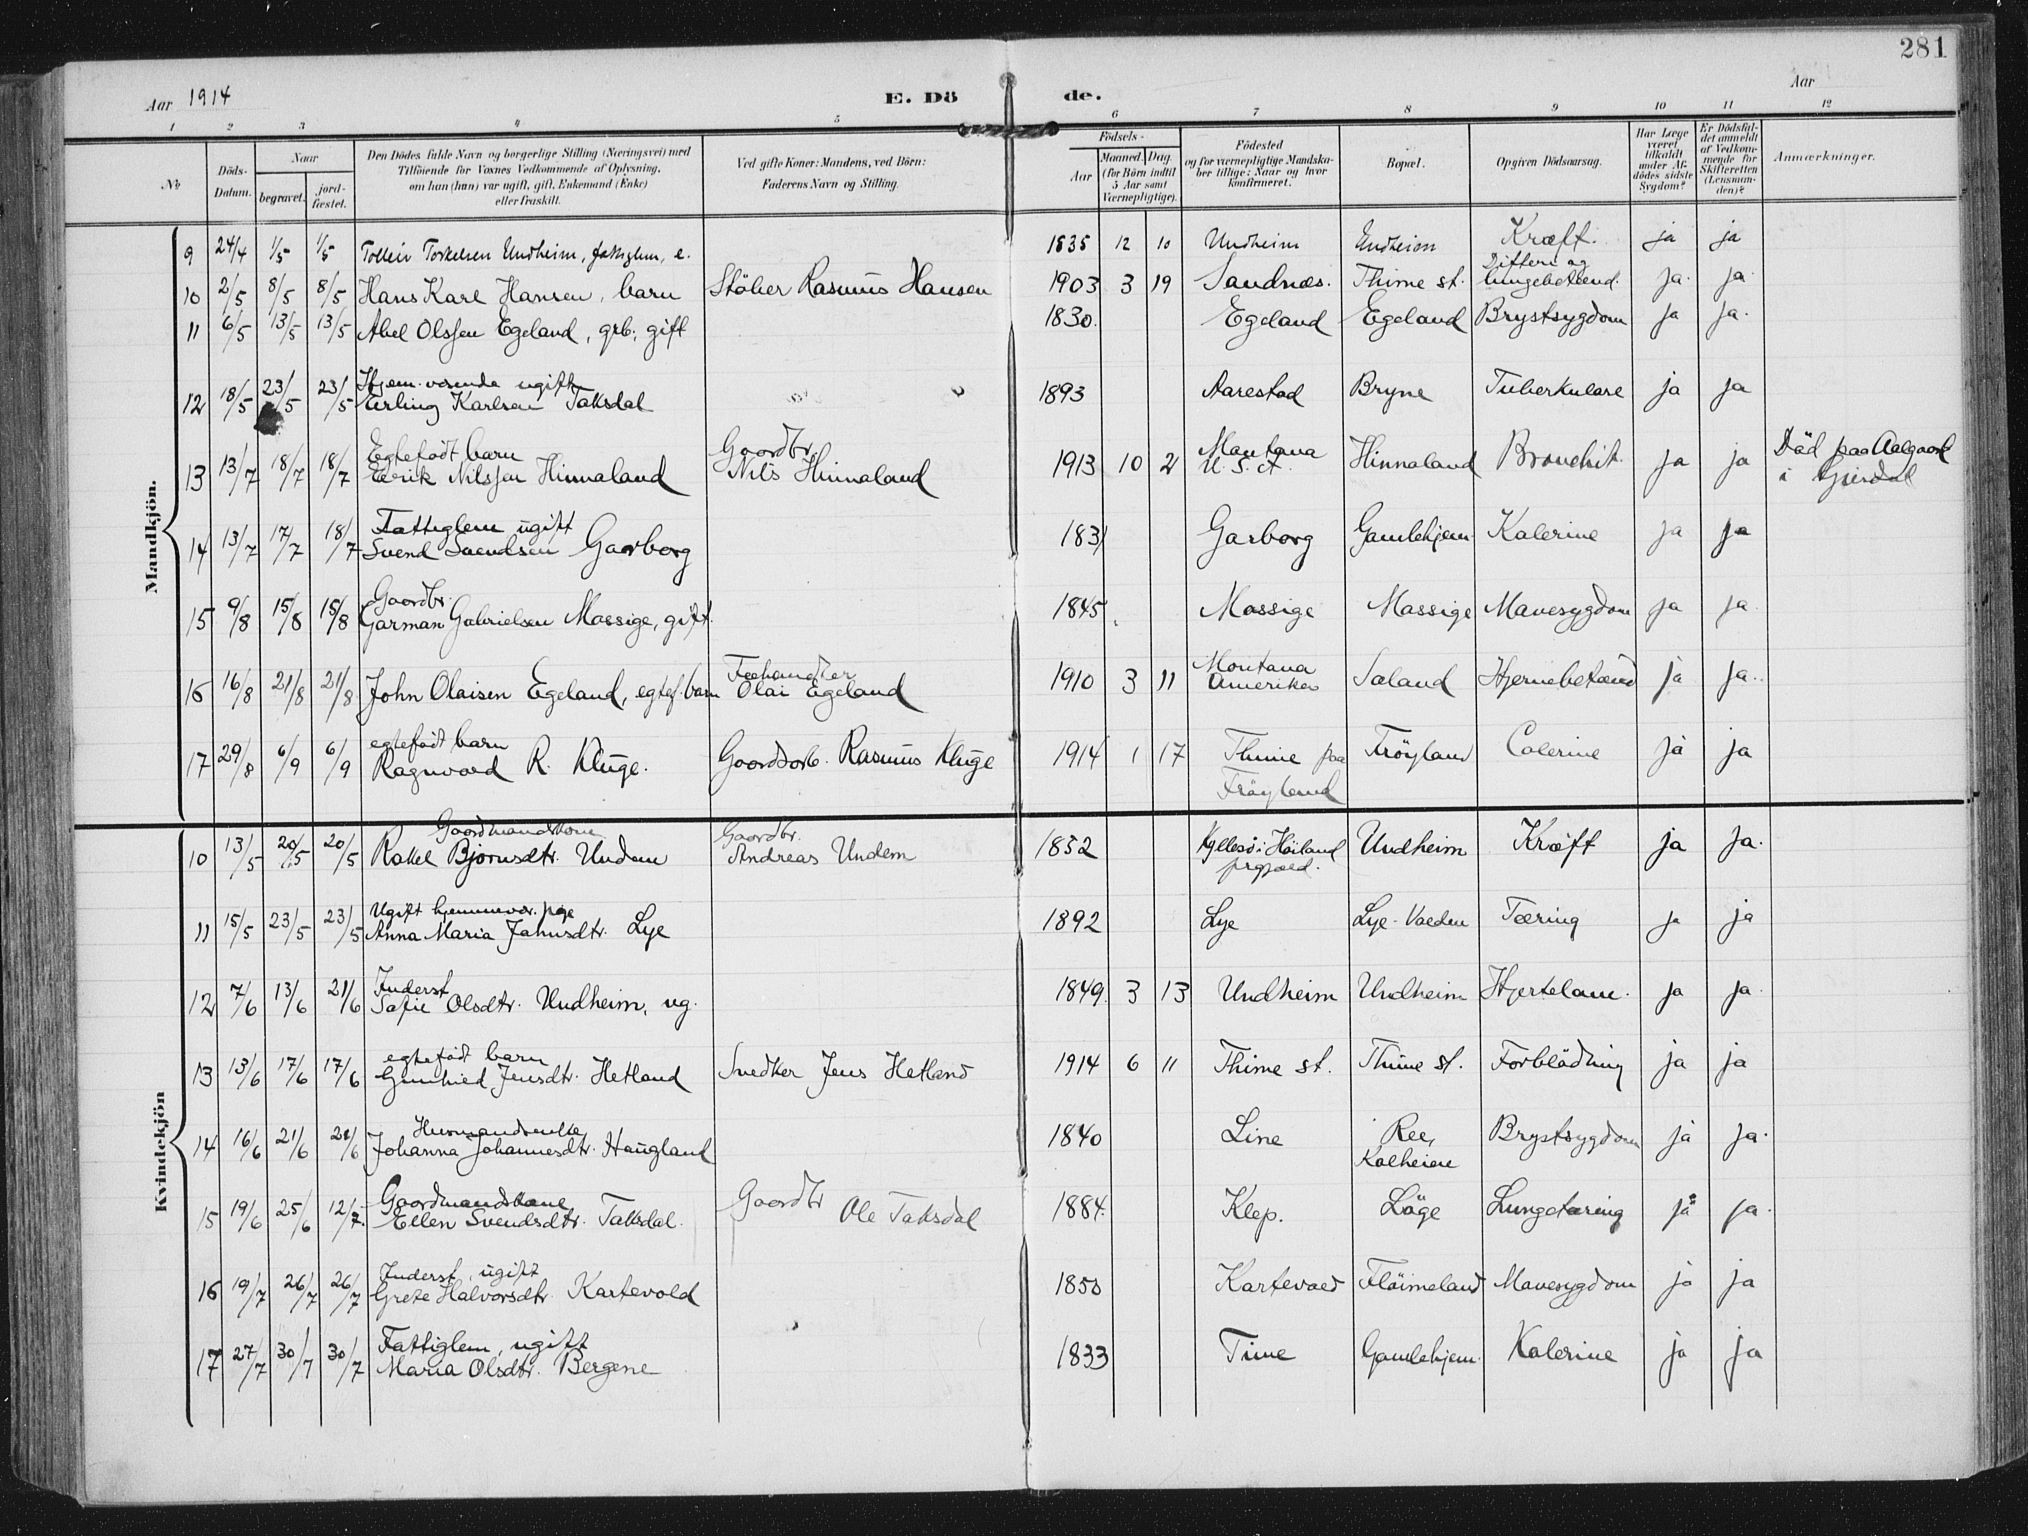 281
Aar 1914 E. Dö de. Aar
1 2 3 4 5 6 7 8 9 10 11 12
No
Döds-Datum.
Naar
begravet. jordfæstet.
Den Dödes fulde Navn og borgerlige Stilling (Næringsvei) med
Tilföiende for Voxnes Vedkommende af Oplysning,
om han (hun) var ugift, gift, Enkemand (Enke)
eller fraskilt.
Ved gifte Koner: Mandens, ved Börn:
Faderens Navn og Stilling.
Födsels-
Aar
Maaned. Dag.
(for Börn indtil
5 Aar samt
Værnepligtige).
Födested
og for værnepligtige Mandska-
ber tillige: Naar og hvor
konfirmeret.
Bopæl.
Opgiven Dödsaarsag.
Har Læge
været
tilkaldt
under Af-
dödes sidste
Sygdom?
Er Dödsfal-
det anmeldt
af Vedkom-
mende for
Skifteretten
(Lensman-
den)?
Anmærkninger.
Mandkjön.
9 24/4 1/5 1/5 Torkelsen Undheim, e. 1835 12 10 Undheim Undheim Kræft. ja ja
10 2/5 8/5 8/5 Hans Karl Hansen, barn Stöber Rasmus Hansen 1903 3 19 Sandnæs. Thime st. Difteri og
lungebetænd. ja. ja.
11 6/5 13/5 13/5 Abel Olsen Egeland, grb, gift 1830. Egeland Egeland Brystsygdom ja ja.
12 18/5 23/5 23/5 Hjem. værende ugift
Erling Karlsen Taksdal 1893 Aarestad Bryne Tuberkulose ja ja
13 13/7 18/7 18/7 Egtefødt barn
Eirik Nilssen Hinnaland Gaardbr.
Nils Hinnaland 1913 10 2 Montana
U. S. A. Hinnaland Bronchit. ja ja Död paa Aalgaard
i Gjesdal
14 13/7 17/7 18/7 Fattiglem ugift
Svend Svendsen Gaarborg 1831 Garborg Gamlehjem Kalerine ja ja
15 9/8 15/8 15/8 Gaardbr.
Garman Gabrielsen Mossige, gift. 1845 Mossige Mossige Mavesygdom ja ja
16 16/8 21/8 21/8 John Olaisen Egeland, egtef. barn Feehandler
Olai Egeland 1910 3 11 Montana
Amerika Saland Hjernebetænd ja ja.
17 29/8 6/9 6/9 egtefødt barn
Ragnvard R. Kluge. Gaardbr. Rasmus Kluge 1914 1 17 Thime paa
Fröyland Fröyland Colerine ja ja
Kvindekjön
10 13/5 20/5 20/5 Gaardmandskone
Rakel Bjornsdtr. Undem Gaardbr.
Andreas Undem 1852 i Höiland
prgjæld. Undheim Kræft ja ja.
11 15/5 23/5 23/5 Ugift hjemmevær. pige
Anna Maria Jahnsdtr. Lye 1892 Lye Lye-Vælden Tæring ja ja
12 7/6 13/6 21/6 Inderst
Safie Olsdtr. Undheim, ug. 1849. 3 13 Undheim Undheim Hjertelam. ja ja
13 13/6 17/6 17/6 egtefødt barn
Gunhild Jensdtr. Hetland Snedker Jens Hetland 1914 6 11 Thime st. Thime st. Forblödning ja ja
14 16/6 21/6 21/6 Husmandsenke
Johanna Johannesdtr. Haugland 1840 Line Ree,
Kalheien Brystsygdom ja ja.
15 19/6 25/6 12/7 Gaardmandskone
Ellen Svendsdtr. Taksdal. Gaardbr Ole Taksdal 1884. Klep. Löge Lungetæring ja ja.
16 19/7 26/7 26/7 Inderst, ugift
Grete Halvorsdtr. Kartevold 1850 Kartevold Flöimeland Mavesygdom ja ja
17 27/7 30/7 30/7 Fattiglem, ugift
Maria Olsdtr. Bergene 1833 Time Gamlehjem. Kolerine ja ja